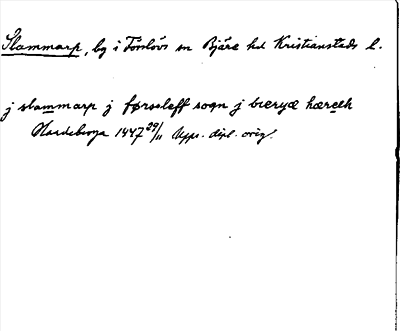 Slammarp, by i Förslövs sn Bjäre hd Kristianstads l.
j slammarp j førsleff sogn j bieryæ hæreth
Hardeberga 1447 29/11 Upps. dipl. orig.